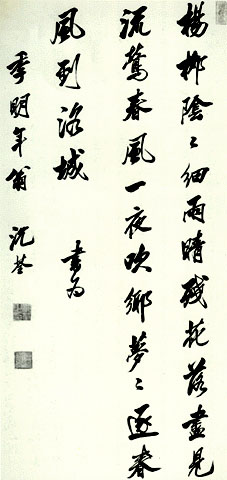 楊柳陰〻細雨晴殘花落盡見
流鶯春風一夜吹鄉夢〻逐春
風到洛城　書為
季明年翁　沈荃